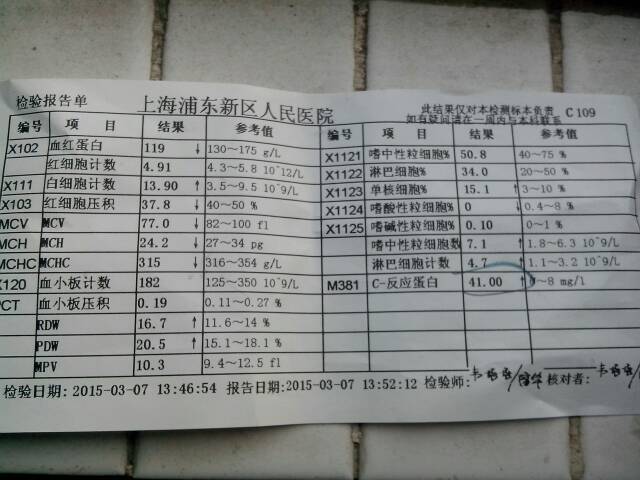 检验报告单 上海浦东新区人民医院 此结果仅对本检测标本负责 C109
如有疑问请在一周内与本科联系
编号 项 目 结果 参考值 编号 项 目 结果 参考值
X102 血红蛋白 119 ↓ 130～175 g/L X1121 嗜中性粒细胞% 50.8 40～75 %
红细胞计数 4.91 4.3～5.8 10^12/L X1122 淋巴细胞% 34.0 20～50 %
X111 白细胞计数 13.90 ↑ 3.5～9.5 10^9/L X1123 单核细胞% 15.1 ↑ 3～10 %
X103 红细胞压积 37.8 ↓ 40～50 % X1124 嗜酸性粒细胞% 0 ↓ 0.4～8 %
MCV MCV 77.0 ↓ 82～100 fl X1125 嗜碱性粒细胞% 0.10 0～1 %
MCH MCH 24.2 ↓ 27～34 pg 嗜中性粒细胞数 7.1 ↑ 1.8～6.3 10^9/L
MCHC MCHC 315 ↓ 316～354 g/L 淋巴细胞计数 4.7 ↑ 1.1～3.2 10^9/L
X120 血小板计数 182 125～350 10^9/L M381 C-反应蛋白 41.00 ↑ ～8 mg/l
PCT 血小板压积 0.19 0.11～0.27 %
RDW 16.7 ↑ 11.6～14 %
PDW 20.5 ↑ 15.1～18.1 %
MPV 10.3 9.4～12.5 fl
检验日期:2015-03-07 13:46:54 报告日期:2015-03-07 13:52:12 检验师: 核对者: